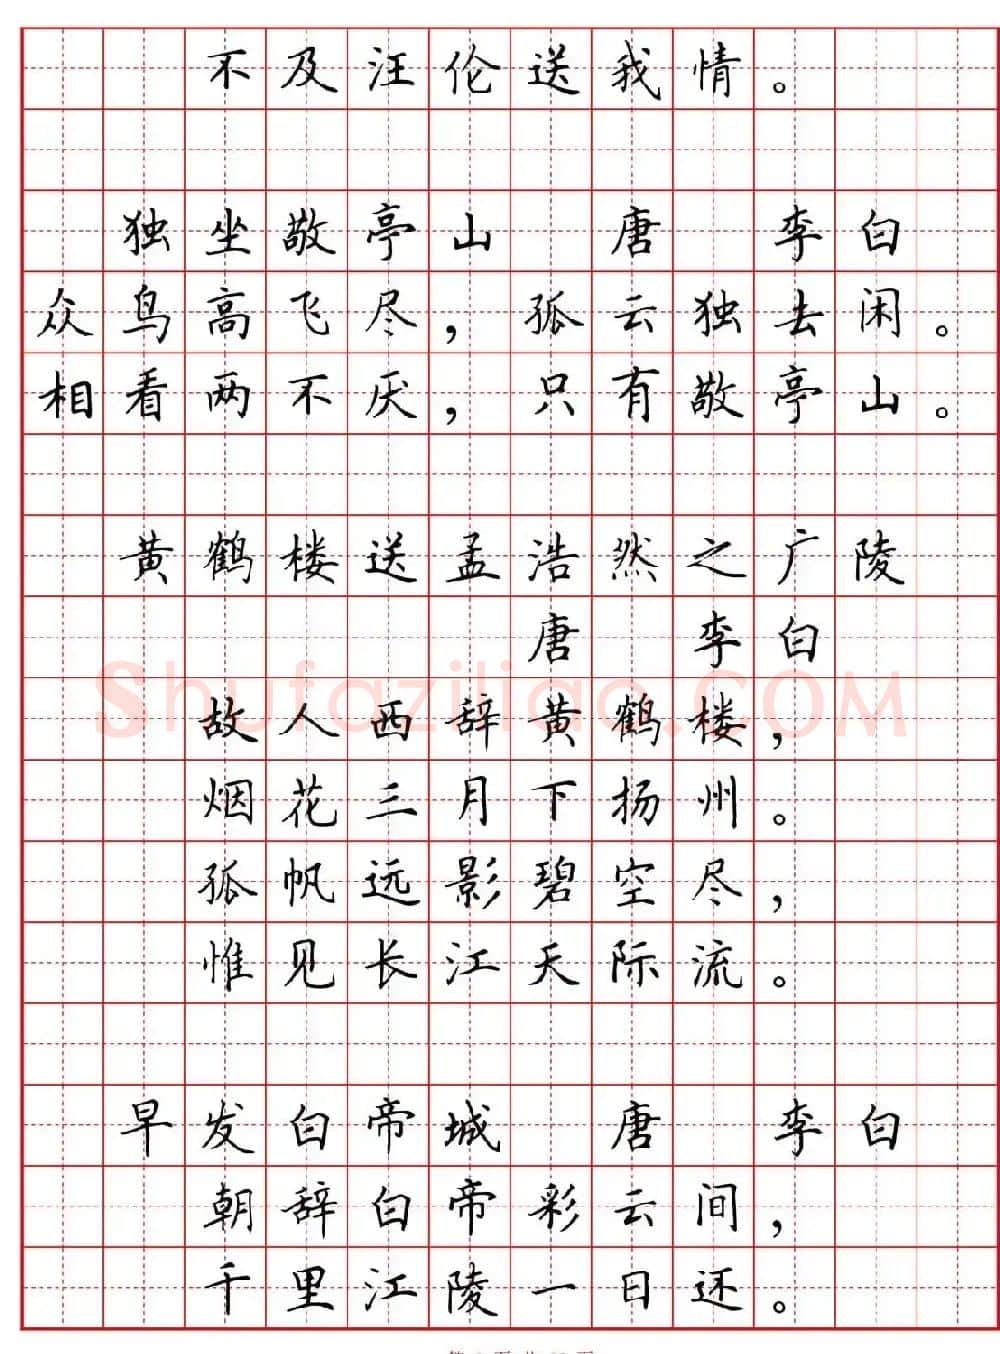 不及汪伦送我情。
独坐敬亭山 唐 李白
众鸟高飞尽，孤云独去闲。
相看两不厌，只有敬亭山。
黄鹤楼送孟浩然之广陵
唐 李白
shufaziliao.COM
故人西辞黄鹤楼，
烟花三月下扬州。
孤帆远影碧空尽，
惟见长江天际流。
早发白帝城 唐 李白
朝辞白帝彩云间，
千里江陵一日还。